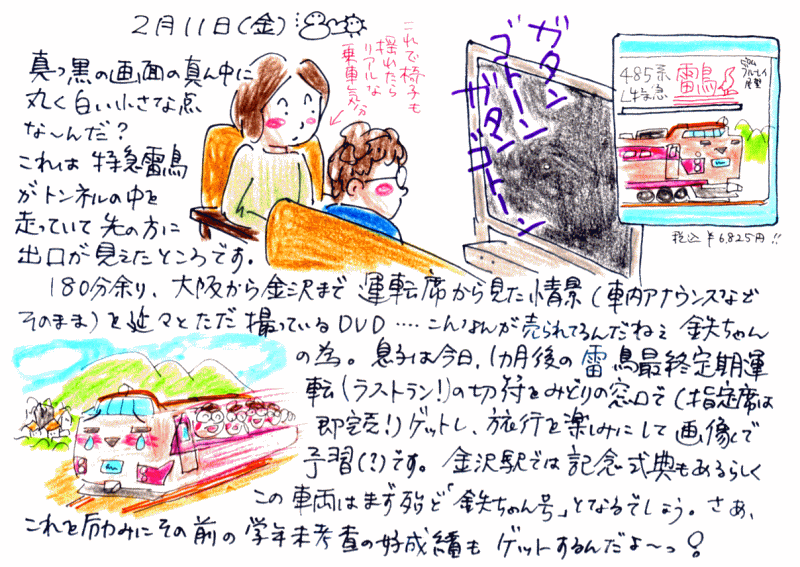 2月11日(金)
真っ黒の画面の真ん中に
丸く白い小さな点
な〜んだ?
これは特急雷鳥
がトンネルの中を
走っていて先の方に
出口が見えたところです。
これで椅子も
揺れたら
リアルな
乗車気分
ガタン
ゴトーン
ガタンゴトーン
485系
特急
雷鳥
ブルーレイ
展望
税込¥6,825円!!
180分余り、大阪から金沢まで運転席から見た情景(車内アナウンスなど
そのまま)を延々とただ撮っているDVD‥‥こんなんが売られてるんだねぇ鉄ちゃん
の為。息子は今日、1カ月後の雷鳥最終定期運
転(ラストラン!)の切符をみどりの窓口で(指定席は
即完売!)ゲットし、旅行を楽しみにして画像で
予習(?)です。金沢駅では記念式典もあるらしく
この車両はまず殆ど「鉄ちゃん号」となるでしょう。さぁ、
これを励みにその前の学年末考査の好成績もゲットするんだよ〜っ!